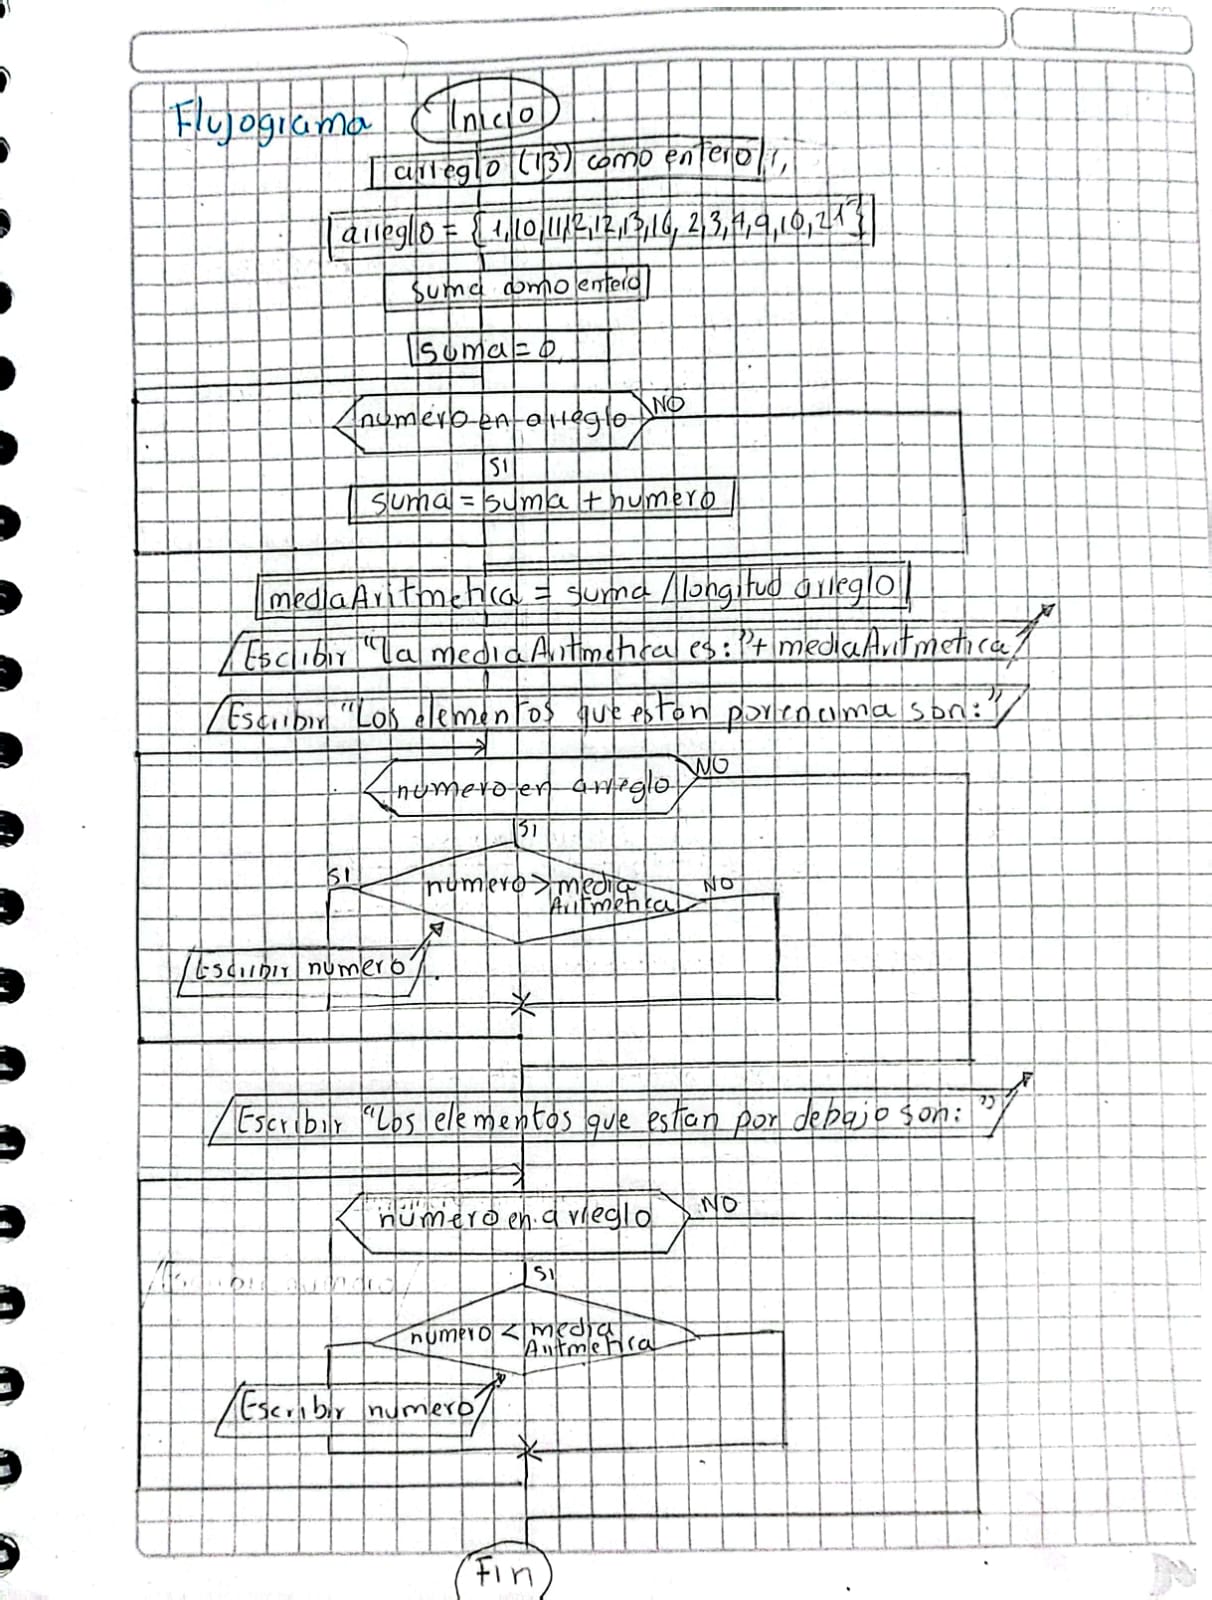 Flujograma
Inicio
arreglo (13) como entero
arreglo = {1,10,11,2,12,13,16, 2,3,4,9,10,21}
suma como entero
suma = 0
numero en arreglo
NO
SI
suma = suma + numero
mediaAritmetica = suma / longitud arreglo
Escribir "la mediaAritmetica es:"+ mediaAritmetica
Escribir "Los elementos que estan por encima son:"
numero en arreglo
NO
SI
SI
numero > media
Aritmetica
NO
Escribir numero
Escribir "Los elementos que estan por debajo son: "
numero en arreglo
NO
SI
numero < media
Aritmetica
Escribir numero
Fin